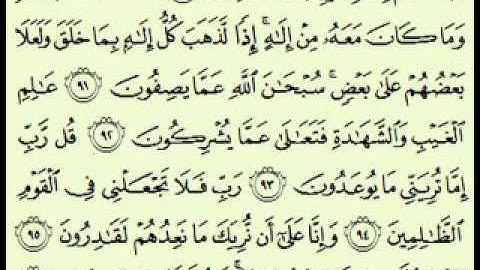 وَمَا كَانَ مَعَهُۥ مِنْ إِلَٰهٍ ۚ إِذًا لَّذَهَبَ كُلُّ إِلَٰهٍۭ بِمَا خَلَقَ وَلَعَلَا
بَعْضُهُمْ عَلَىٰ بَعْضٍ ۚ سُبْحَٰنَ ٱللَّهِ عَمَّا يَصِفُونَ ٩١ عَٰلِمِ
ٱلْغَيْبِ وَٱلشَّهَٰدَةِ فَتَعَٰلَىٰ عَمَّا يُشْرِكُونَ ٩٢ قُل رَّبِّ
إِمَّا تُرِيَنِّي مَا يُوعَدُونَ ٩٣ رَبِّ فَلَا تَجْعَلْنِي فِي ٱلْقَوْمِ
ٱلظَّٰلِمِينَ ٩٤ وَإِنَّا عَلَىٰٓ أَن نُّرِيَكَ مَا نَعِدُهُمْ لَقَٰدِرُونَ ٩٥